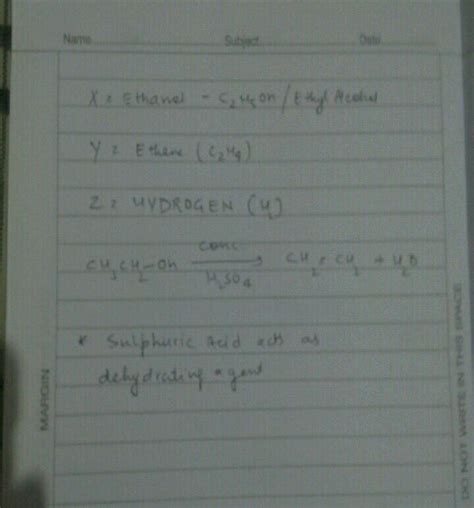 Name Subject Date
X = Ethanol - C2H5OH / Ethyl Alcohol
Y = Ethene (C2H4)
Z = HYDROGEN (H2)
CH3CH2-OH conc H2SO4 → CH2=CH2 + H2O
* Sulphuric Acid acts as
dehydrating agent
MARGIN
DO NOT WRITE IN THIS SPACE